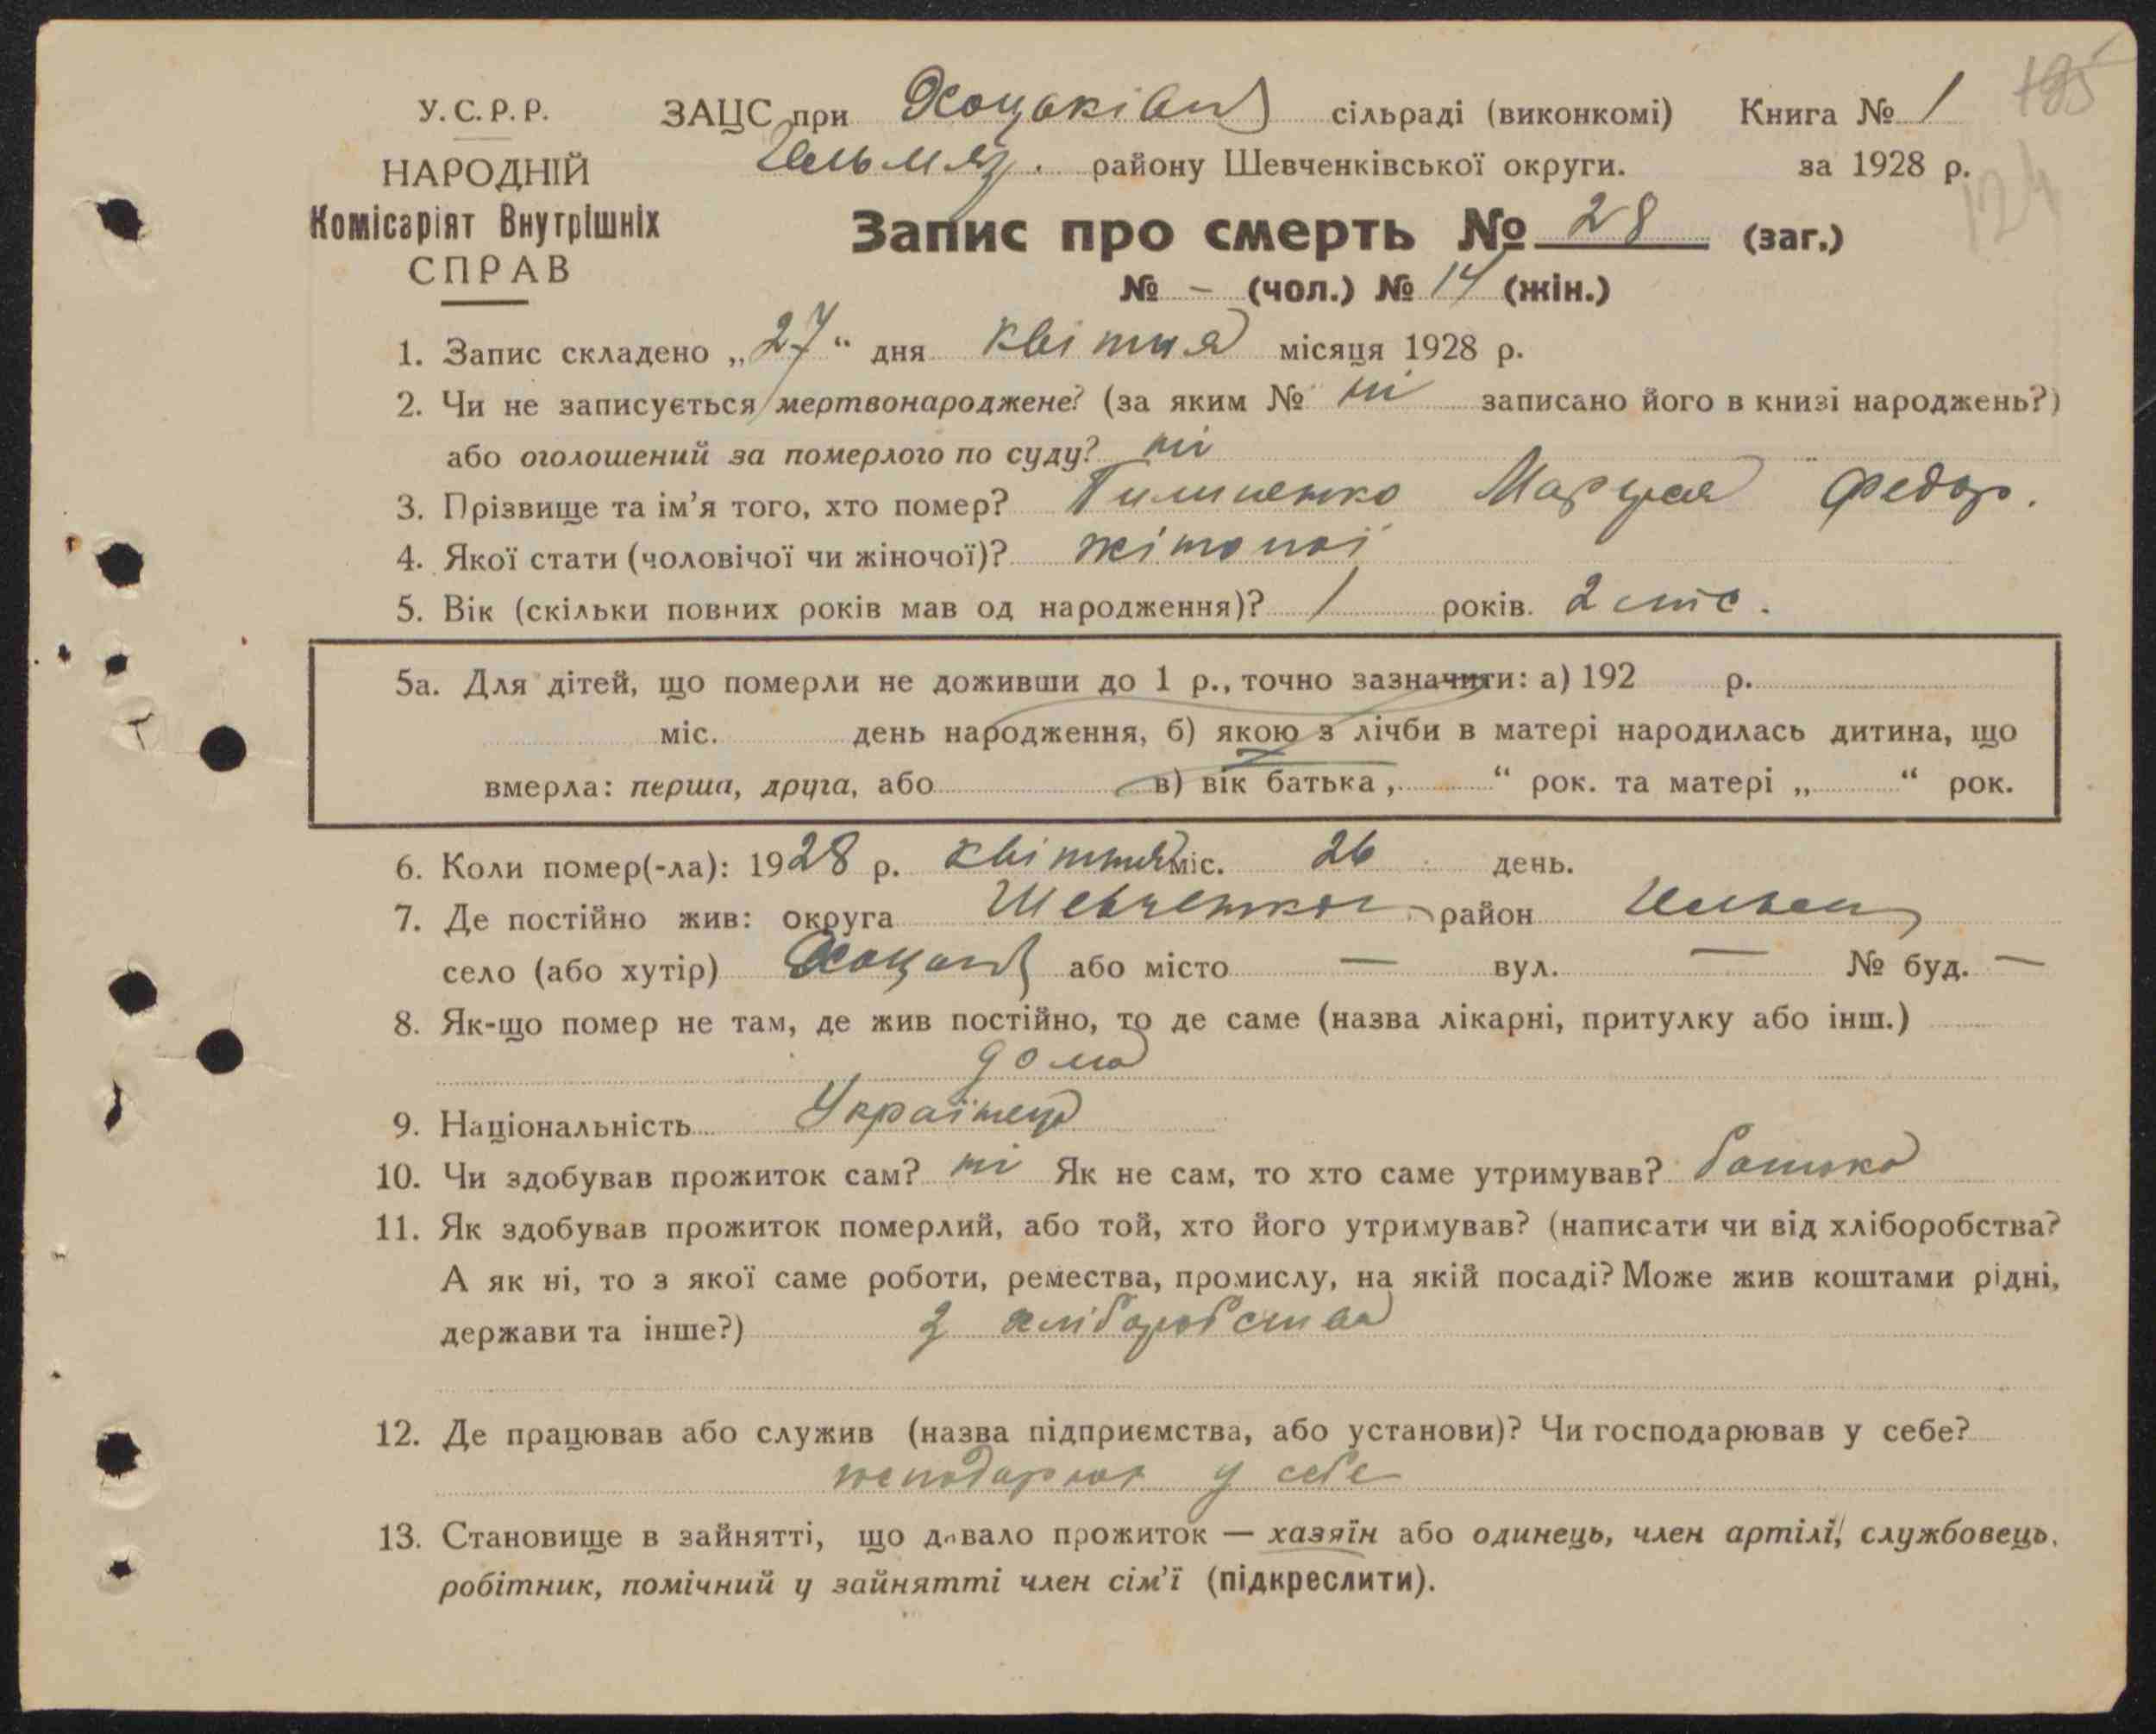 У.С.Р.Р.
НАРОДНІЙ
Комісаріят Внутрішніх
СПРАВ
ЗАЦС при Хоцьківській сільраді (виконкомі) Книга № 1
району Шевченківської округи. за 1928 р.
195
124
Запис про смерть № 28 (заг.)
№ - (чол.) № 14 (жін.)
1. Запис складено „27“ дня квітня місяця 1928 р.
2. Чи не записується мертвонароджене? (за яким № ні записано його в книзі народжень?)
або оголошений за померлого по суду? ні
3. Прізвище та ім’я того, хто помер? Федор.
4. Якої стати (чоловічої чи жіночої)? жіночої
5. Вік (скільки повних років мав од народження)? 1 років. 2 міс.
5а. Для дітей, що померли не доживши до 1 р., точно зазначити: а) 192 р.
міс. день народження, б) якою з лічби в матері народилась дитина, що
вмерла: перша, друга, або в) вік батька „ “ рок. та матері „ “ рок.
6. Коли помер(-ла): 1928 р. квітня міс. 26 день.
7. Де постійно жив: округа Шевченков район
село (або хутір) Хоцьки або місто — вул. — № буд. —
8. Як-що помер не там, де жив постійно, то де саме (назва лікарні, притулку або інш.)
дома
9. Національність Українец
10. Чи здобував прожиток сам? ні Як не сам, то хто саме утримував? батько
11. Як здобував прожиток померлий, або той, хто його утримував? (написати чи від хліборобства?
А як ні, то з якої саме роботи, ремества, промислу, на якій посаді? Може жив коштами рідні,
держави та інше?) з хліборобства
12. Де працював або служив (назва підприємства, або установи)? Чи господарював у себе?
у себе
13. Становище в зайнятті, що давало прожиток — хазяїн або одинець, член артілі, службовець,
робітник, помічний у зайнятті член сім’ї (підкреслити).